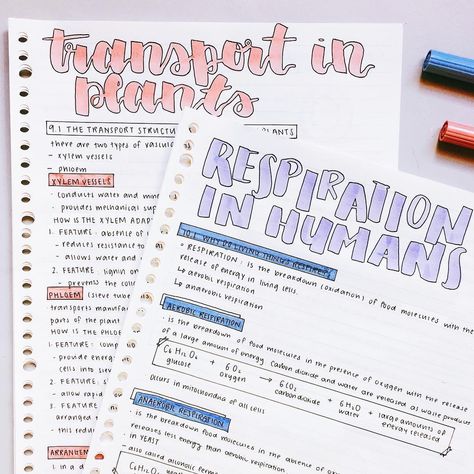 transport in
plants
9.1 THE TRANSPORT PLANTS
there are two types of
- xylem vessels
- phloem
XYLEM VESSELS
- conducts water and
- provides mechanical
HOW IS THE XYLEM
1. FEATURE: absence of
- reduces resistance to
- allows water and
2. FEATURE: lignin on
- prevents the
PHLOEM (sieve
transports
parts of the plant
HOW IS THE
1. FEATURE:
- provide
cells into
2. FEATURE:
- allow rapid
3. FEATURE:
arranged
- this
1. in a
RESPIRATION
IN HUMANS
10.1 WHY DO LIVING THINGS RESPIRE?
• RESPIRATION: is the breakdown (oxidation) of food molecules with the
release of energy in living cells.
↳ aerobic respiration
↳ anaerobic respiration
AEROBIC RESPIRATION
- is the breakdown of food molecules in the presence of oxygen with the release
of a large amount of energy. Carbon dioxide and water are released as waste products
C6H12O6 + 6O2 → 6CO2 + 6H2O + large amounts of
glucose oxygen carbon dioxide water energy released
Occurs in mitochondria of all cells
ANAEROBIC RESPIRATION
- is the breakdown food molecules in the absence of
releases less energy than aerobic respiration.
in YEAST
- also called alcoholic